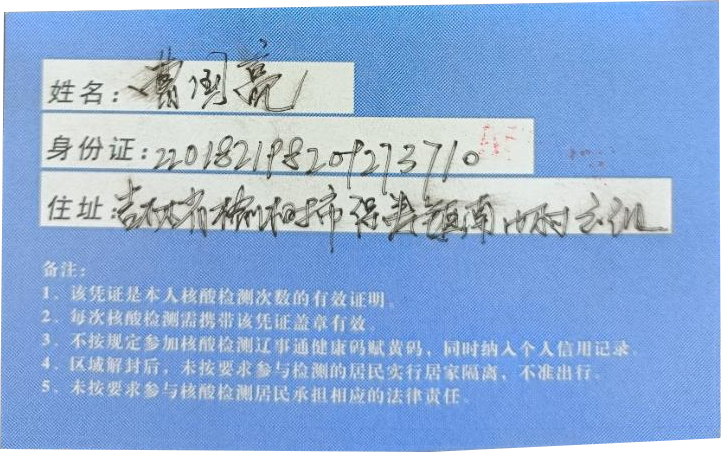 姓名：曹国亮
身份证：220182198209273710
住址：吉林省榆树市保寿镇南
备注：
1、该凭证是本人核酸检测次数的有效证明。
2、每次核酸检测需携带该凭证盖章有效。
3、不按规定参加核酸检测辽事通健康码赋黄码，同时纳入个人信用记录。
4、区域解封后，未按要求参与检测的居民实行居家隔离，不准出行。
5、未按要求参与核酸检测居民承担相应的法律责任。